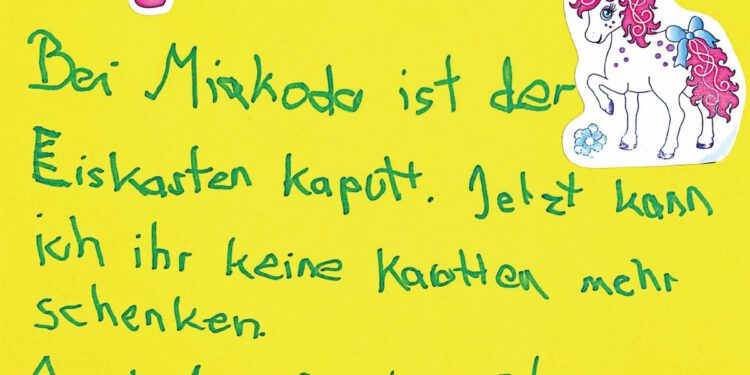 Bei Miakoda ist der
Eiskasten kaputt. Jetzt kann
ich ihr keine Karotten mehr
schenken.